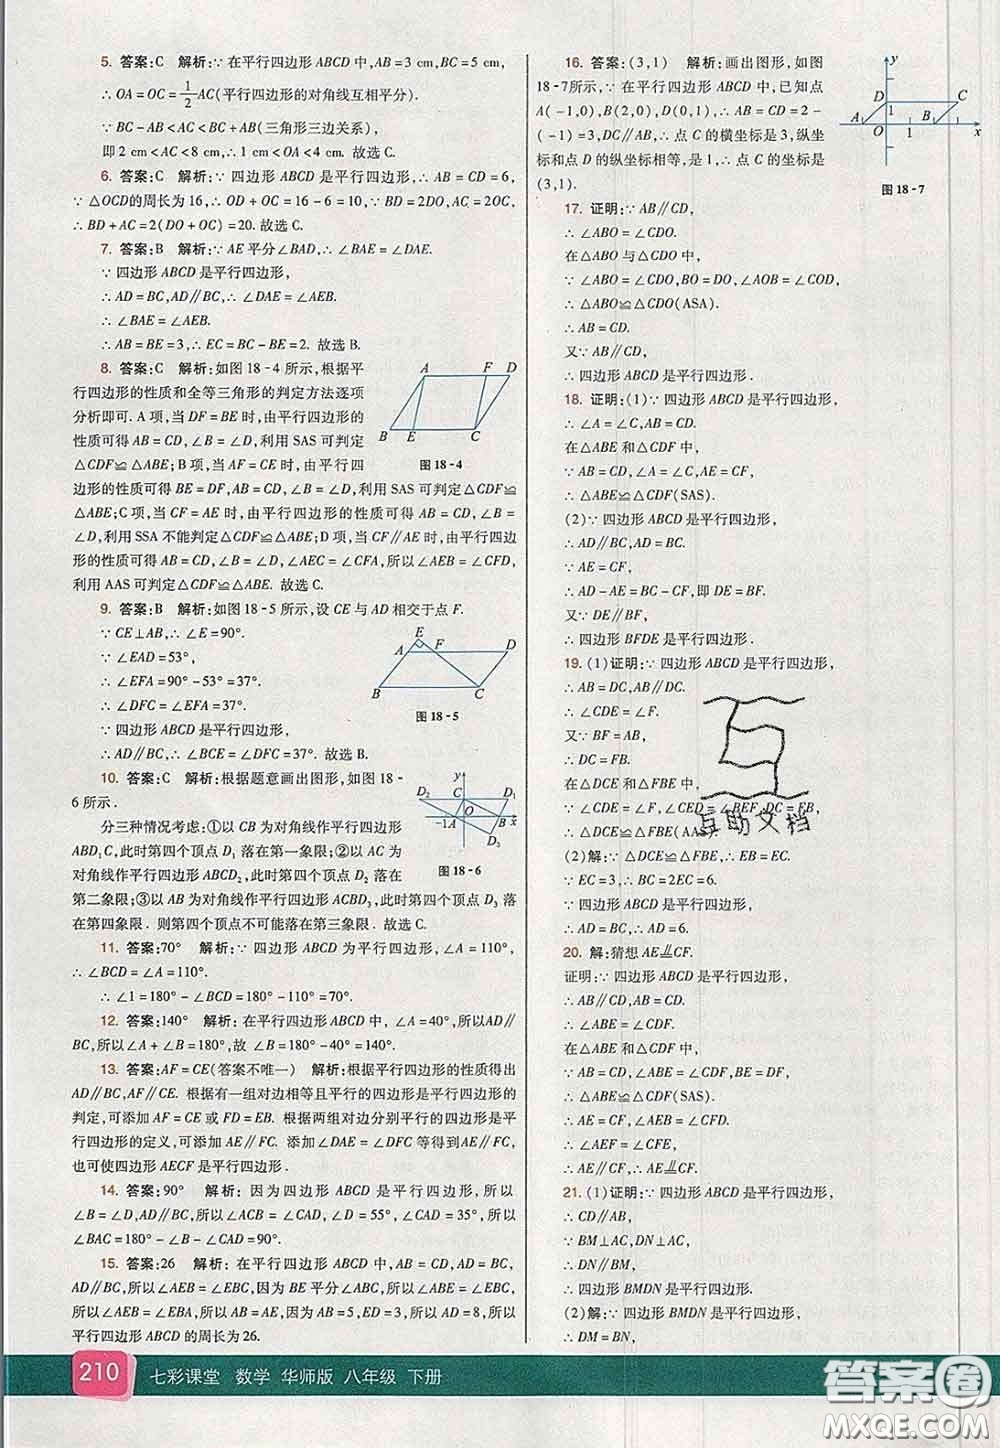 5. 答案:C 解析:∵在平行四边形ABCD中,AB=3 cm,BC=5 cm,
∴OA=OC=1/2AC(平行四边形的对角线互相平分).
∵BC-AB<AC<BC+AB(三角形三边关系),
即2 cm<AC<8 cm,∴1 cm<OA<4 cm. 故选C.
6. 答案:C 解析:∵四边形ABCD是平行四边形,∴AB=CD=6,
∵△OCD的周长为16,∴OD+OC=16-6=10,∵BD=2DO,AC=2OC,∴
BD+AC=2(DO+OC)=20. 故选C.
7. 答案:B 解析:∵AE平分∠BAD,∴∠BAE=∠DAE.
∵四边形ABCD是平行四边形,
∴AD=BC,AD∥BC,∴∠DAE=∠AEB.
∴∠BAE=∠AEB.
∴AB=BE=3,∴EC=BC-BE=2. 故选B.
8. 答案:C 解析:如图18-4所示,根据平
行四边形的性质和全等三角形的判定方法逐项
分析即可. A项,当DF=BE时,由平行四边形的
性质可得AB=CD,∠B=∠D,利用SAS可判定
△CDF≌△ABE;B项,当AF=CE时,由平行四
边形的性质可得BE=DF,AB=CD,∠B=∠D,利用SAS可判定△CDF≌
△ABE;C项,当CF=AE时,由平行四边形的性质可得AB=CD,∠B=
∠D,利用SSA不能判定△CDF≌△ABE;D项,当CF∥AE时,由平行四边形的
性质可得AB=CD,∠B=∠D,∠AEC=∠CFA,∴∠AEB=∠CFD,
利用AAS可判定△CDF≌△ABE. 故选C.
A F D
B E C
图18-4
9. 答案:B 解析:如图18-5所示,设CE与AD相交于点F.
∵CE⊥AB,∴∠E=90°.
∵∠EAD=53°,
∴∠EFA=90°-53°=37°.
∴∠DFC=∠EFA=37°.
∵四边形ABCD是平行四边形,
∴AD∥BC,∴∠BCE=∠DFC=37°. 故选B.
E
A F D
B C
图18-5
10. 答案:C 解析:根据题意画出图形,如图18-
6所示.
分三种情况考虑:①以CB为对角线作平行四边形
ABD₁C,此时第四个顶点D₁落在第一象限;②以AC为
对角线作平行四边形ABCD₂,此时第四个顶点D₂落在
第二象限;③以AB为对角线作平行四边形ACBD₃,此时第四个顶点D₃落
在第四象限. 则第四个顶点不可能落在第三象限. 故选C.
y
D₂ C D₁
O
-1 A B x
D₃
图18-6
11. 答案:70° 解析:∵四边形ABCD为平行四边形,∠A=110°,
∴∠BCD=∠A=110°.
∴∠1=180°-∠BCD=180°-110°=70°.
12. 答案:140° 解析:在平行四边形ABCD中,∠A=40°,所以AD∥
BC,所以∠A+∠B=180°,故∠B=180°-40°=140°.
13. 答案:AF=CE(答案不唯一) 解析:根据平行四边形的性质得出
AD∥BC,AD=BC. 根据有一组对边相等且平行的四边形是平行四边形的
判定,可添加AF=CE或FD=EB. 根据两组对边分别平行的四边形是平
行四边形的定义,可添加AE∥FC. 添加∠DAE=∠DFC等得到AE∥FC,
也可使四边形AECF是平行四边形.
14. 答案:90° 解析:因为四边形ABCD是平行四边形,所以
∠B=∠D,AB∥CD,所以∠BAC=∠ACD,∠D=55°,∠CAD=35°,所以
∠BAC=180°-∠B-∠CAD=90°.
15. 答案:26 解析:在平行四边形ABCD中,AB=CD,AD=BC,
AD∥BC,所以∠AEB=∠EBC,因为BE平分∠ABC,所以∠ABE=∠EBC,
所以∠AEB=∠EBA,所以AB=AE,因为AB=5,ED=3,所以AD=8,所以
平行四边形ABCD的周长为26.
16. 答案:(3,1) 解析:画出图形,如图
18-7所示,∵在平行四边形ABCD中,已知点
A(-1,0),B(2,0),D(0,1),∴AB=CD=2-
(-1)=3,DC∥AB,∴点C的横坐标是3,纵坐
标和点D的纵坐标相等,是1,∴点C的坐标是
(3,1).
y
D C
1
A B
O 1 x
图18-7
17. 证明:∵AB∥CD,
∴∠ABO=∠CDO.
在△ABO与△CDO中,
∵∠ABO=∠CDO,BO=DO,∠AOB=∠COD,
∴△ABO≌△CDO(ASA).
∴AB=CD.
又∵AB∥CD,
∴四边形ABCD是平行四边形.
18. 证明:(1)∵四边形ABCD是平行四边形,
∴∠A=∠C,AB=CD.
在△ABE和△CDF中,
∵AB=CD,∠A=∠C,AE=CF,
∴△ABE≌△CDF(SAS).
(2)∵四边形ABCD是平行四边形,
∴AD∥BC,AD=BC.
∵AE=CF,
∴AD-AE=BC-CF,即DE=BF.
又∵DE∥BF,
∴四边形BFDE是平行四边形.
19. (1)证明:∵四边形ABCD是平行四边形,
∴AB=DC,AB∥DC.
∴∠CDE=∠F.
又∵BF=AB,
∴DC=FB.
在△DCE和△FBE中,
∵∠CDE=∠F,∠CED=∠BEF,DC=FB,
∴△DCE≌△FBE(AAS).
(2)解:∵△DCE≌△FBE,∴EB=EC.
∵EC=3,∴BC=2EC=6.
∵四边形ABCD是平行四边形,
∴AD=BC,∴AD=6.
20. 解:猜想AE∥═CF.
证明:∵四边形ABCD是平行四边形,
∴AB∥CD,AB=CD.
∴∠ABE=∠CDF.
在△ABE和△CDF中,
∵AB=CD,∠ABE=∠CDF,BE=DF,
∴△ABE≌△CDF(SAS).
∴AE=CF,∠AEB=∠CFD.
∴∠AEF=∠CFE,
∴AE∥CF,∴AE∥═CF.
21. (1)证明:∵四边形ABCD是平行四边形,
∴CD∥AB,
∵BM⊥AC,DN⊥AC,
∴DN∥BM,
∴四边形BMDN是平行四边形.
(2)解:∵四边形BMDN是平行四边形,
∴DM=BN,
互助文档
210 七彩课堂 数学 华师版 八年级 下册
答案圈
MXQE.COM